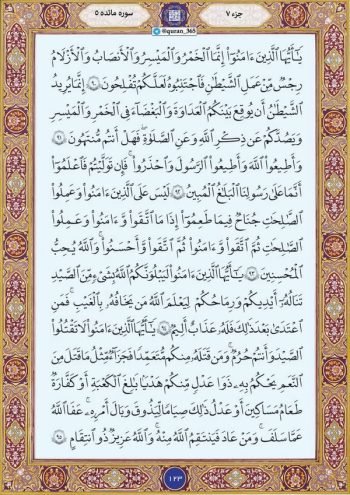 جزء ۷
@quran_365
سوره مائده ۵
يَـٰٓأَيُّهَا ٱلَّذِينَ ءَامَنُوٓاْ إِنَّمَا ٱلْخَمْرُ وَٱلْمَيْسِرُ وَٱلْأَنصَابُ وَٱلْأَزْلَـٰمُ
رِجْسٌ مِّنْ عَمَلِ ٱلشَّيْطَـٰنِ فَٱجْتَنِبُوهُ لَعَلَّكُمْ تُفْلِحُونَ ٩٠ إِنَّمَا يُرِيدُ
ٱلشَّيْطَـٰنُ أَن يُوقِعَ بَيْنَكُمُ ٱلْعَدَٰوَةَ وَٱلْبَغْضَآءَ فِى ٱلْخَمْرِ وَٱلْمَيْسِرِ
وَيَصُدَّكُمْ عَن ذِكْرِ ٱللَّهِ وَعَنِ ٱلصَّلَوٰةِ ۖ فَهَلْ أَنتُم مُّنتَهُونَ ٩١
وَأَطِيعُواْ ٱللَّهَ وَأَطِيعُواْ ٱلرَّسُولَ وَٱحْذَرُواْ ۚ فَإِن تَوَلَّيْتُمْ فَٱعْلَمُوٓاْ
أَنَّمَا عَلَىٰ رَسُولِنَا ٱلْبَلَـٰغُ ٱلْمُبِينُ ٩٢ لَيْسَ عَلَى ٱلَّذِينَ ءَامَنُواْ وَعَمِلُواْ
ٱلصَّـٰلِحَـٰتِ جُنَاحٌ فِيمَا طَعِمُوٓاْ إِذَا مَا ٱتَّقَواْ وَّءَامَنُواْ وَعَمِلُواْ
ٱلصَّـٰلِحَـٰتِ ثُمَّ ٱتَّقَواْ وَّءَامَنُواْ ثُمَّ ٱتَّقَواْ وَّأَحْسَنُواْ ۗ وَٱللَّهُ يُحِبُّ
ٱلْمُحْسِنِينَ ٩٣ يَـٰٓأَيُّهَا ٱلَّذِينَ ءَامَنُواْ لَيَبْلُوَنَّكُمُ ٱللَّهُ بِشَىْءٍ مِّنَ ٱلصَّيْدِ
تَنَالُهُۥٓ أَيْدِيكُمْ وَرِمَاحُكُمْ لِيَعْلَمَ ٱللَّهُ مَن يَخَافُهُۥ بِٱلْغَيْبِ ۚ فَمَنِ
ٱعْتَدَىٰ بَعْدَ ذَٰلِكَ فَلَهُۥ عَذَابٌ أَلِيمٌ ٩٤ يَـٰٓأَيُّهَا ٱلَّذِينَ ءَامَنُواْ لَا تَقْتُلُواْ
ٱلصَّيْدَ وَأَنتُمْ حُرُمٌ ۚ وَمَن قَتَلَهُۥ مِنكُم مُّتَعَمِّدًا فَجَزَآءٌ مِّثْلُ مَا قَتَلَ مِنَ
ٱلنَّعَمِ يَحْكُمُ بِهِۦ ذَوَا عَدْلٍ مِّنكُمْ هَدْيًۢا بَـٰلِغَ ٱلْكَعْبَةِ أَوْ كَفَّـٰرَةٌ
طَعَامُ مَسَـٰكِينَ أَوْ عَدْلُ ذَٰلِكَ صِيَامًا لِّيَذُوقَ وَبَالَ أَمْرِهِۦ ۗ عَفَا ٱللَّهُ
عَمَّا سَلَفَ ۚ وَمَنْ عَادَ فَيَنتَقِمُ ٱللَّهُ مِنْهُ ۗ وَٱللَّهُ عَزِيزٌ ذُو ٱنتِقَامٍ ٩٥
١٢٣